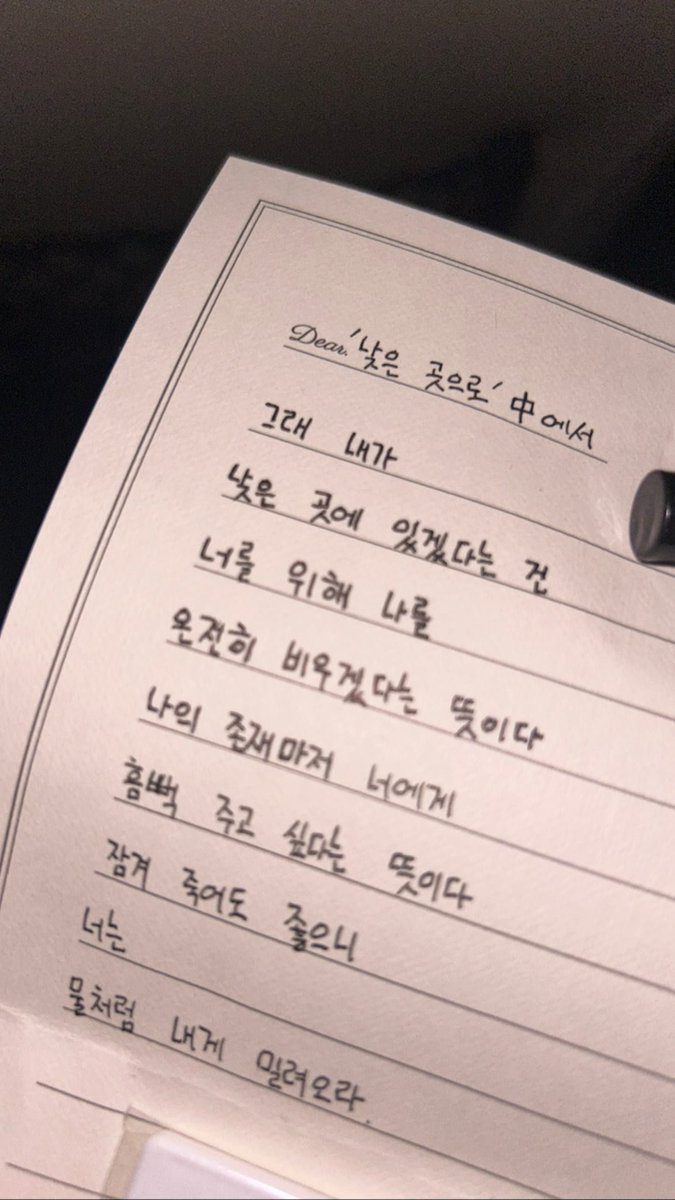 Dear. '낮은 곳으로' 中에서
그래 내가
낮은 곳에 있겠다는 건
너를 위해 나를
온전히 비우겠다는 뜻이다
나의 존재마저 너에게
흠뻑 주고 싶다는 뜻이다
잠겨 죽어도 좋으니
너는
물처럼 내게 밀려오라.